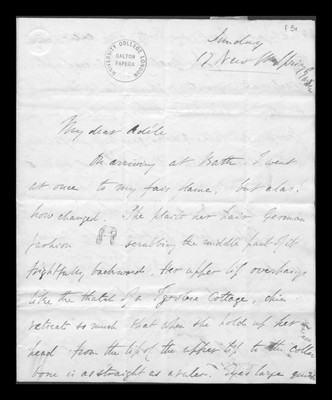 Sunday
17 New
UNIVERSITY COLLEGE LONDON
GALTON
PAPERS
My dear Adèle
On arriving at Bath. I went
at once to my fair dame, but alas.
how changed. She plaits her hair German
fashion scrubbing the middle part of it
frightfully backwards. Her upper lip overhangs
like the thatch of a Tyrolese Cottage, chin
retreats so much that when she holds up her
head from the tip of the upper lip to the collar
bone is as straight as a ruler. Eyes large